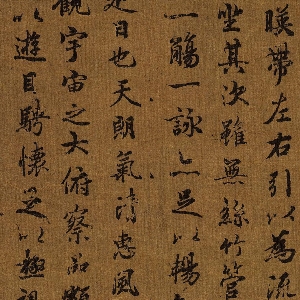 暎帶左右引以為流
坐其次雖無絲竹管
一觴一詠亦足以暢
是日也天朗氣清惠風
觀宇宙之大俯察品類
以遊目騁懷足以極視